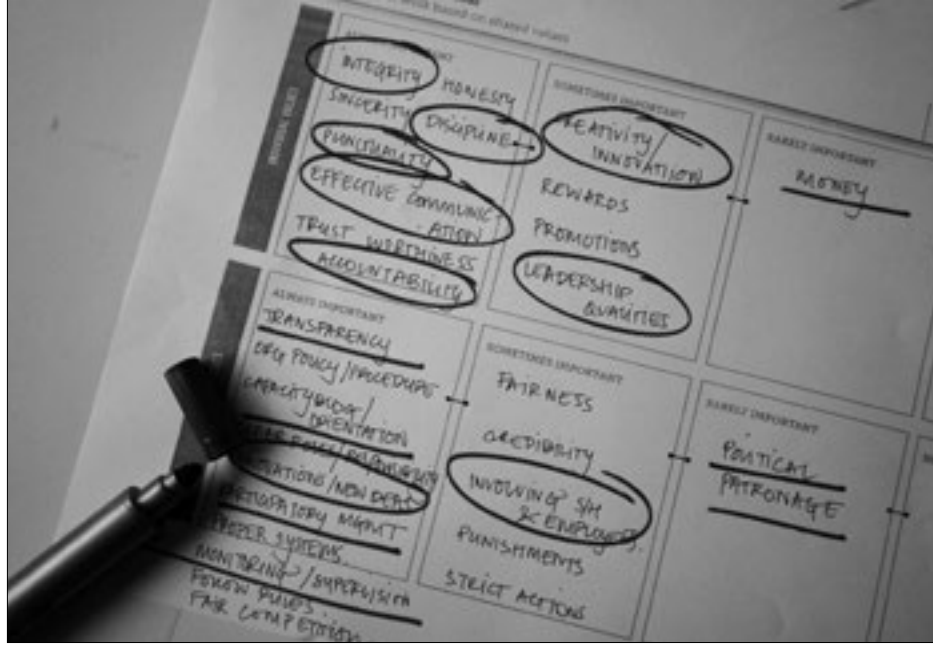 work based on shared values
INTEGRITY
HONESTY
SINCERITY
DISCIPLINE
PUNCTUALITY
EFFECTIVE COMMUNIC-
ATION
TRUST WORTHINESS
ACCOUNTABILITY
SOMETIMES IMPORTANT
CREATIVITY/
INNOVATION
REWARDS
PROMOTIONS
LEADERSHIP
QUALITIES
RARELY IMPORTANT
MONEY
ALWAYS IMPORTANT
TRANSPARENCY
ORG POLICY/PROCEDURE
CAPACITY BLDG/
ORIENTATION
/NEW IDEAS
PARTICIPATORY MGMT
PROPER SYSTEMS
MONITORING/SUPERVISION
FOLLOW RULES
FAIR COMPETITION
SOMETIMES IMPORTANT
FAIRNESS
CREDIBILITY
INVOLVING S/H
& EMPLOYEES
PUNISHMENTS
STRICT ACTIONS
RARELY IMPORTANT
POLITICAL
PATRONAGE